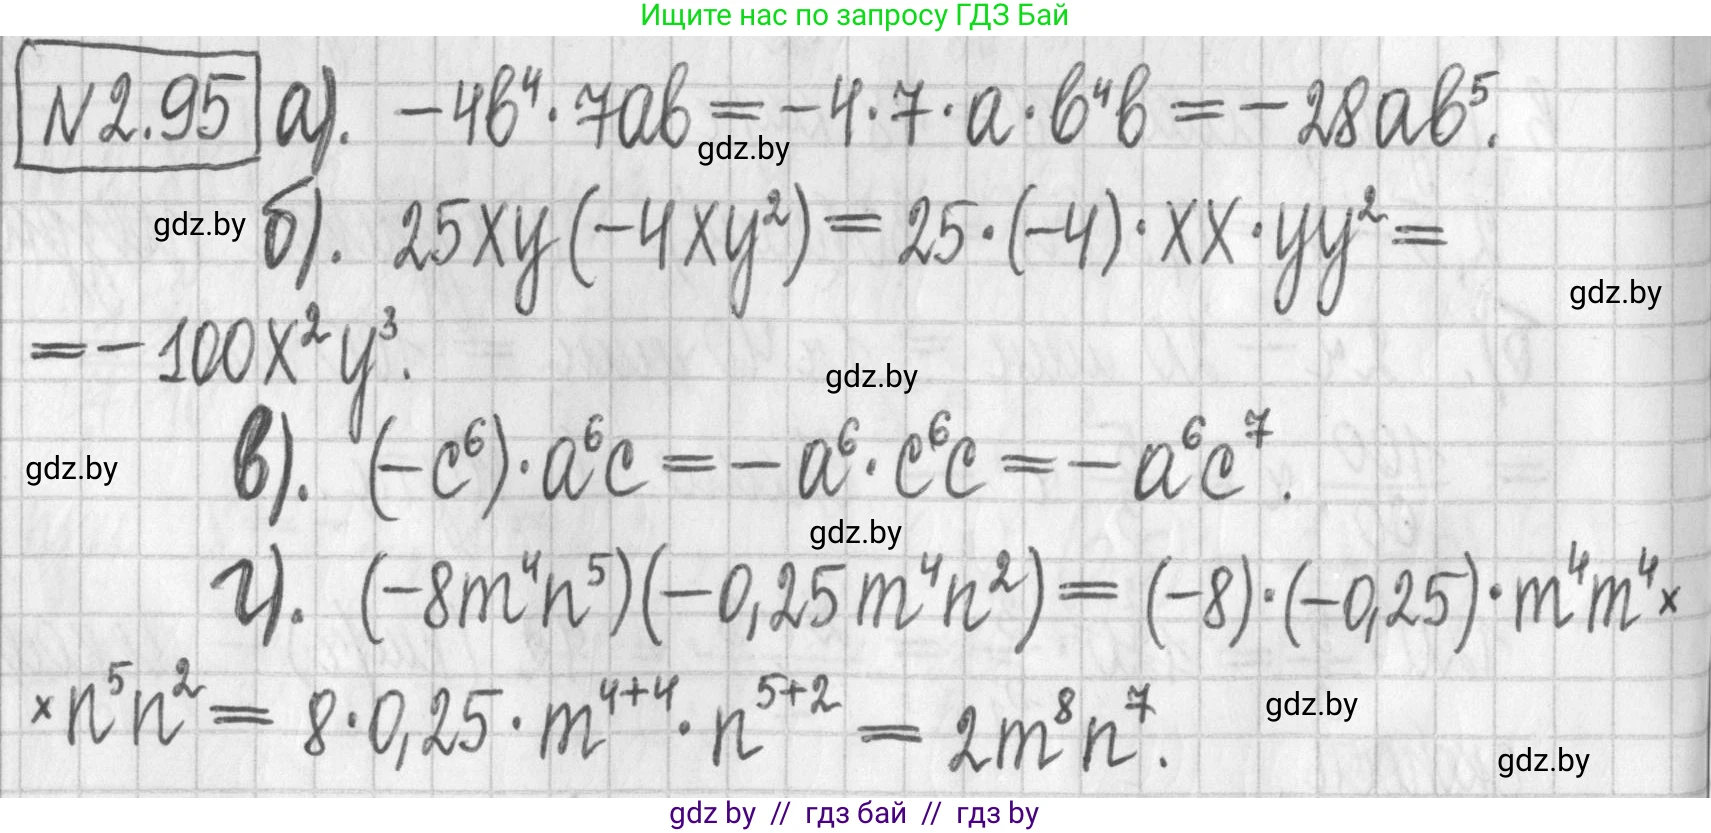 Ищите нас по запросу ГДЗ Бай
N2.95 а). -4b⁴·7ab=-4·7·a·b⁴b=-28ab⁵.
gdz.by
gdz.by б). 25xy(-4xy²)=25·(-4)·xx·yy²=
gdz.by
=-100x²y³.
gdz.by
gdz.by в). (-c⁶)·a⁶c=-a⁶·c⁶c=-a⁶c⁷.
gdz.by
г). (-8m⁴n⁵)(-0,25m⁴n²)=(-8)·(-0,25)·m⁴m⁴×
×n⁵n²=8·0,25·m⁴⁺⁴·n⁵⁺²=2m⁸n⁷.
gdz.by
gdz.by
gdz by // гдз бай // gdz by